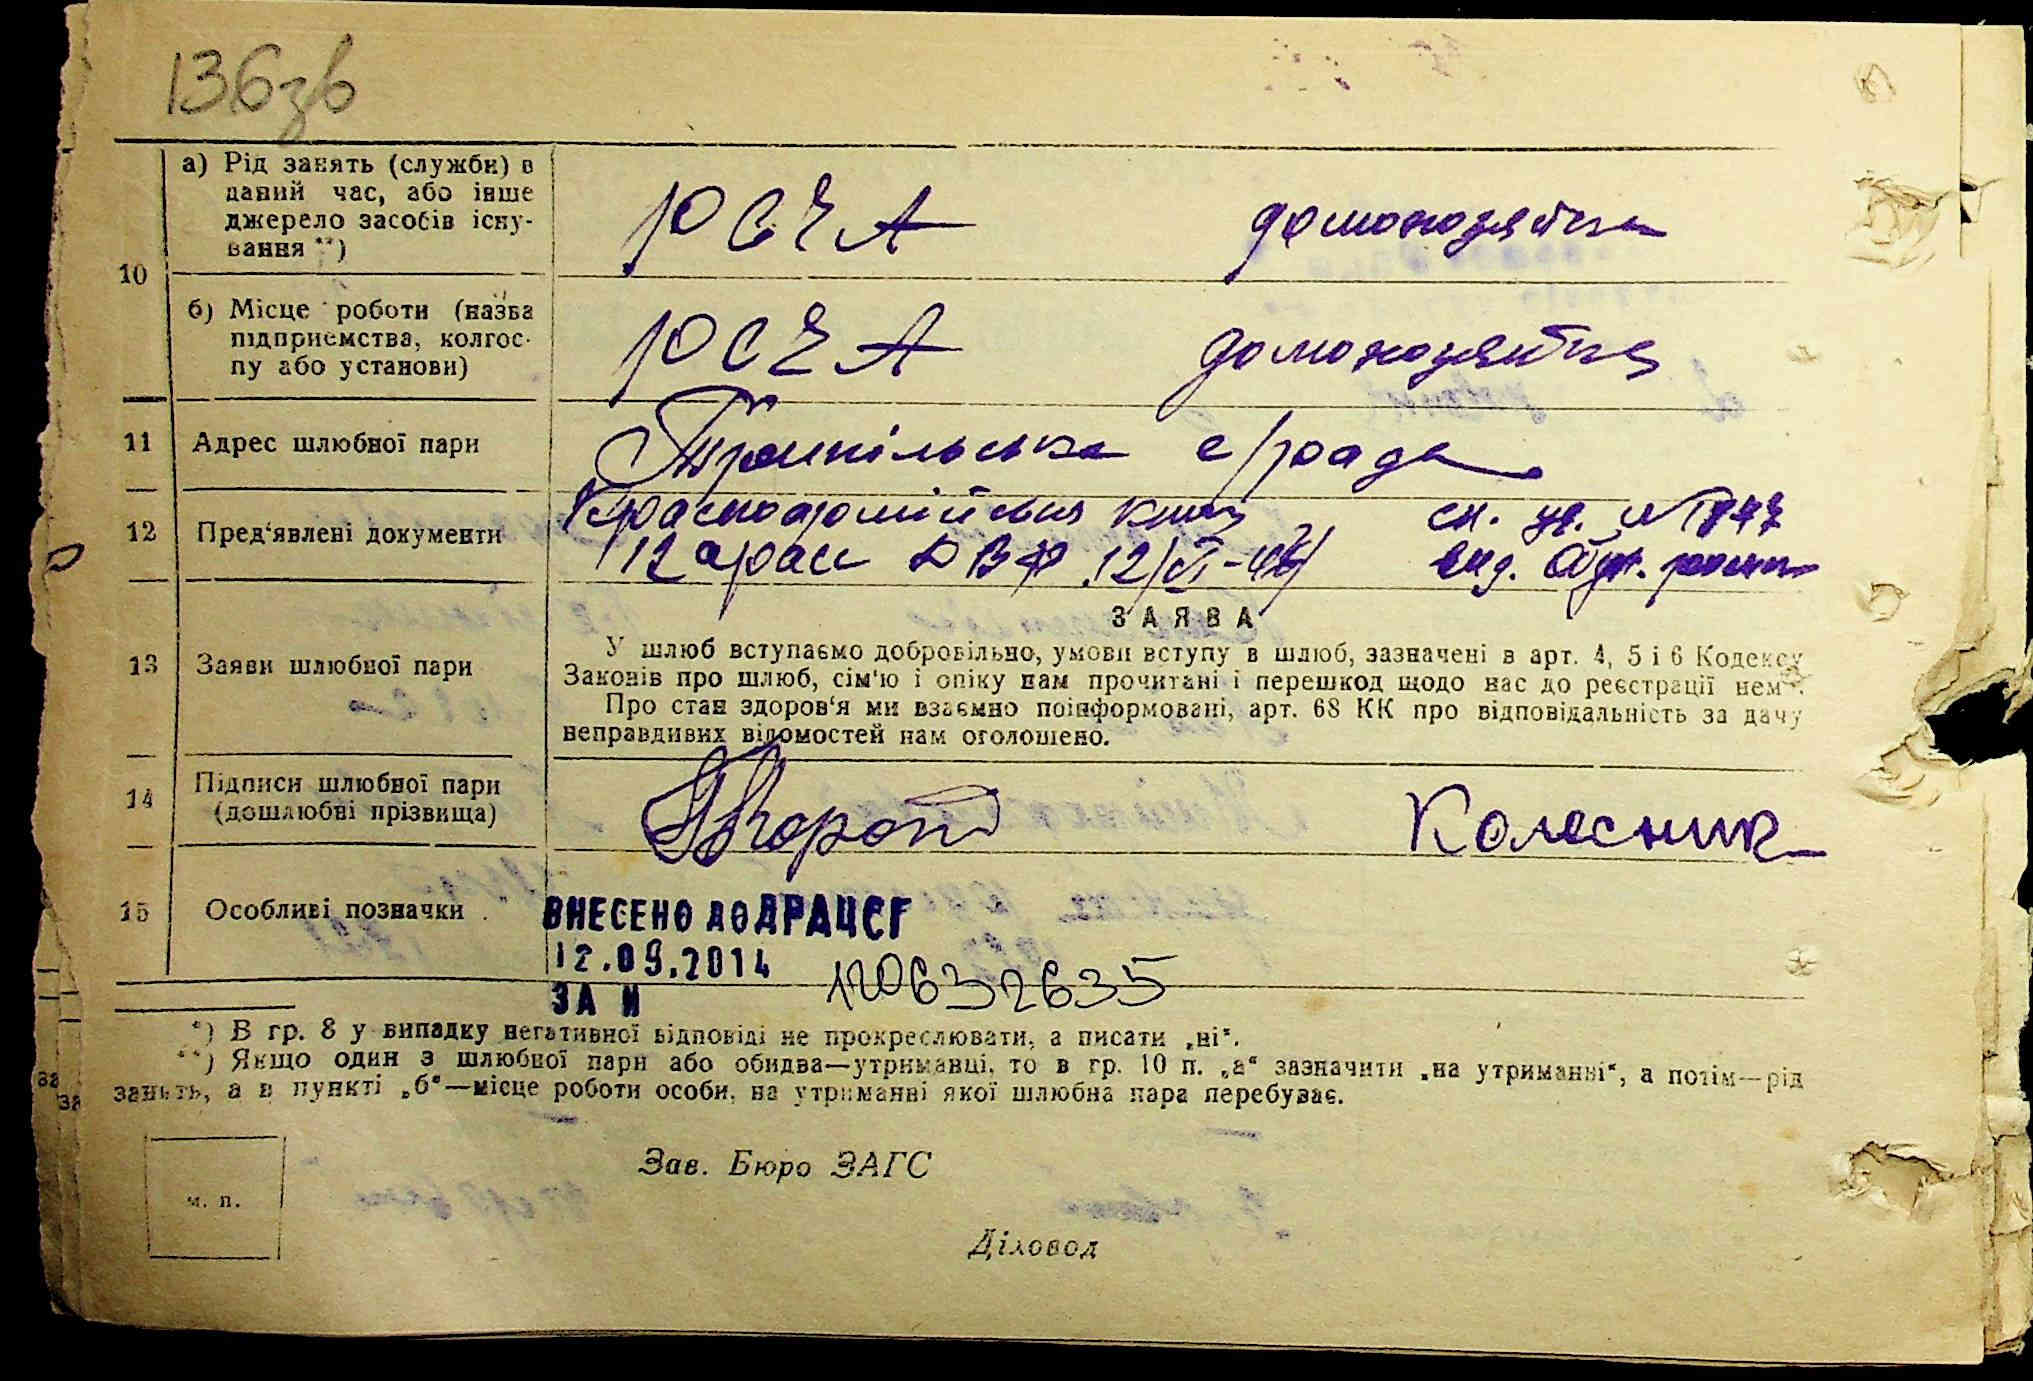 136зв
а) Рід занять (служби) в
даний час, або інше
джерело засобів існу-
вання **)
РСЧА домохозяйка
10
б) Місце роботи (назва
підприємства, колгос-
пу або установи)
РСЧА домохозяйка
11 Адрес шлюбної пари
с/рада
12 Пред'явлені документи
Красноармійська книж
12/VI-46
сп. ув. №
вид.
ЗАЯВА
13 Заяви шлюбної пари
У шлюб вступаємо добровільно, умови вступу в шлюб, зазначені в арт. 4, 5 і 6 Кодексу
Законів про шлюб, сім'ю і опіку нам прочитані і перешкод щодо нас до реєстрації нема.
Про стан здоров'я ми взаємно поінформовані, арт. 68 КК про відповідальність за дачу
неправдивих відомостей нам оголошено.
14 Підписи шлюбної пари
(дошлюбні прізвища)
Колесник
15 Особливі позначки
ВНЕСЕНО ДО ДРАЦСГ
12.09.2014
ЗА N
*) В гр. 8 у випадку негативної відповіді не прокреслювати, а писати „ні“.
**) Якщо один з шлюбної пари або обидва—утриманці, то в гр. 10 п. „а“ зазначити „на утриманні“, а потім—рід
занять, а в пункті „б“—місце роботи особи, на утриманні якої шлюбна пара перебуває.
м. п.
Зав. Бюро ЗАГС
Діловод